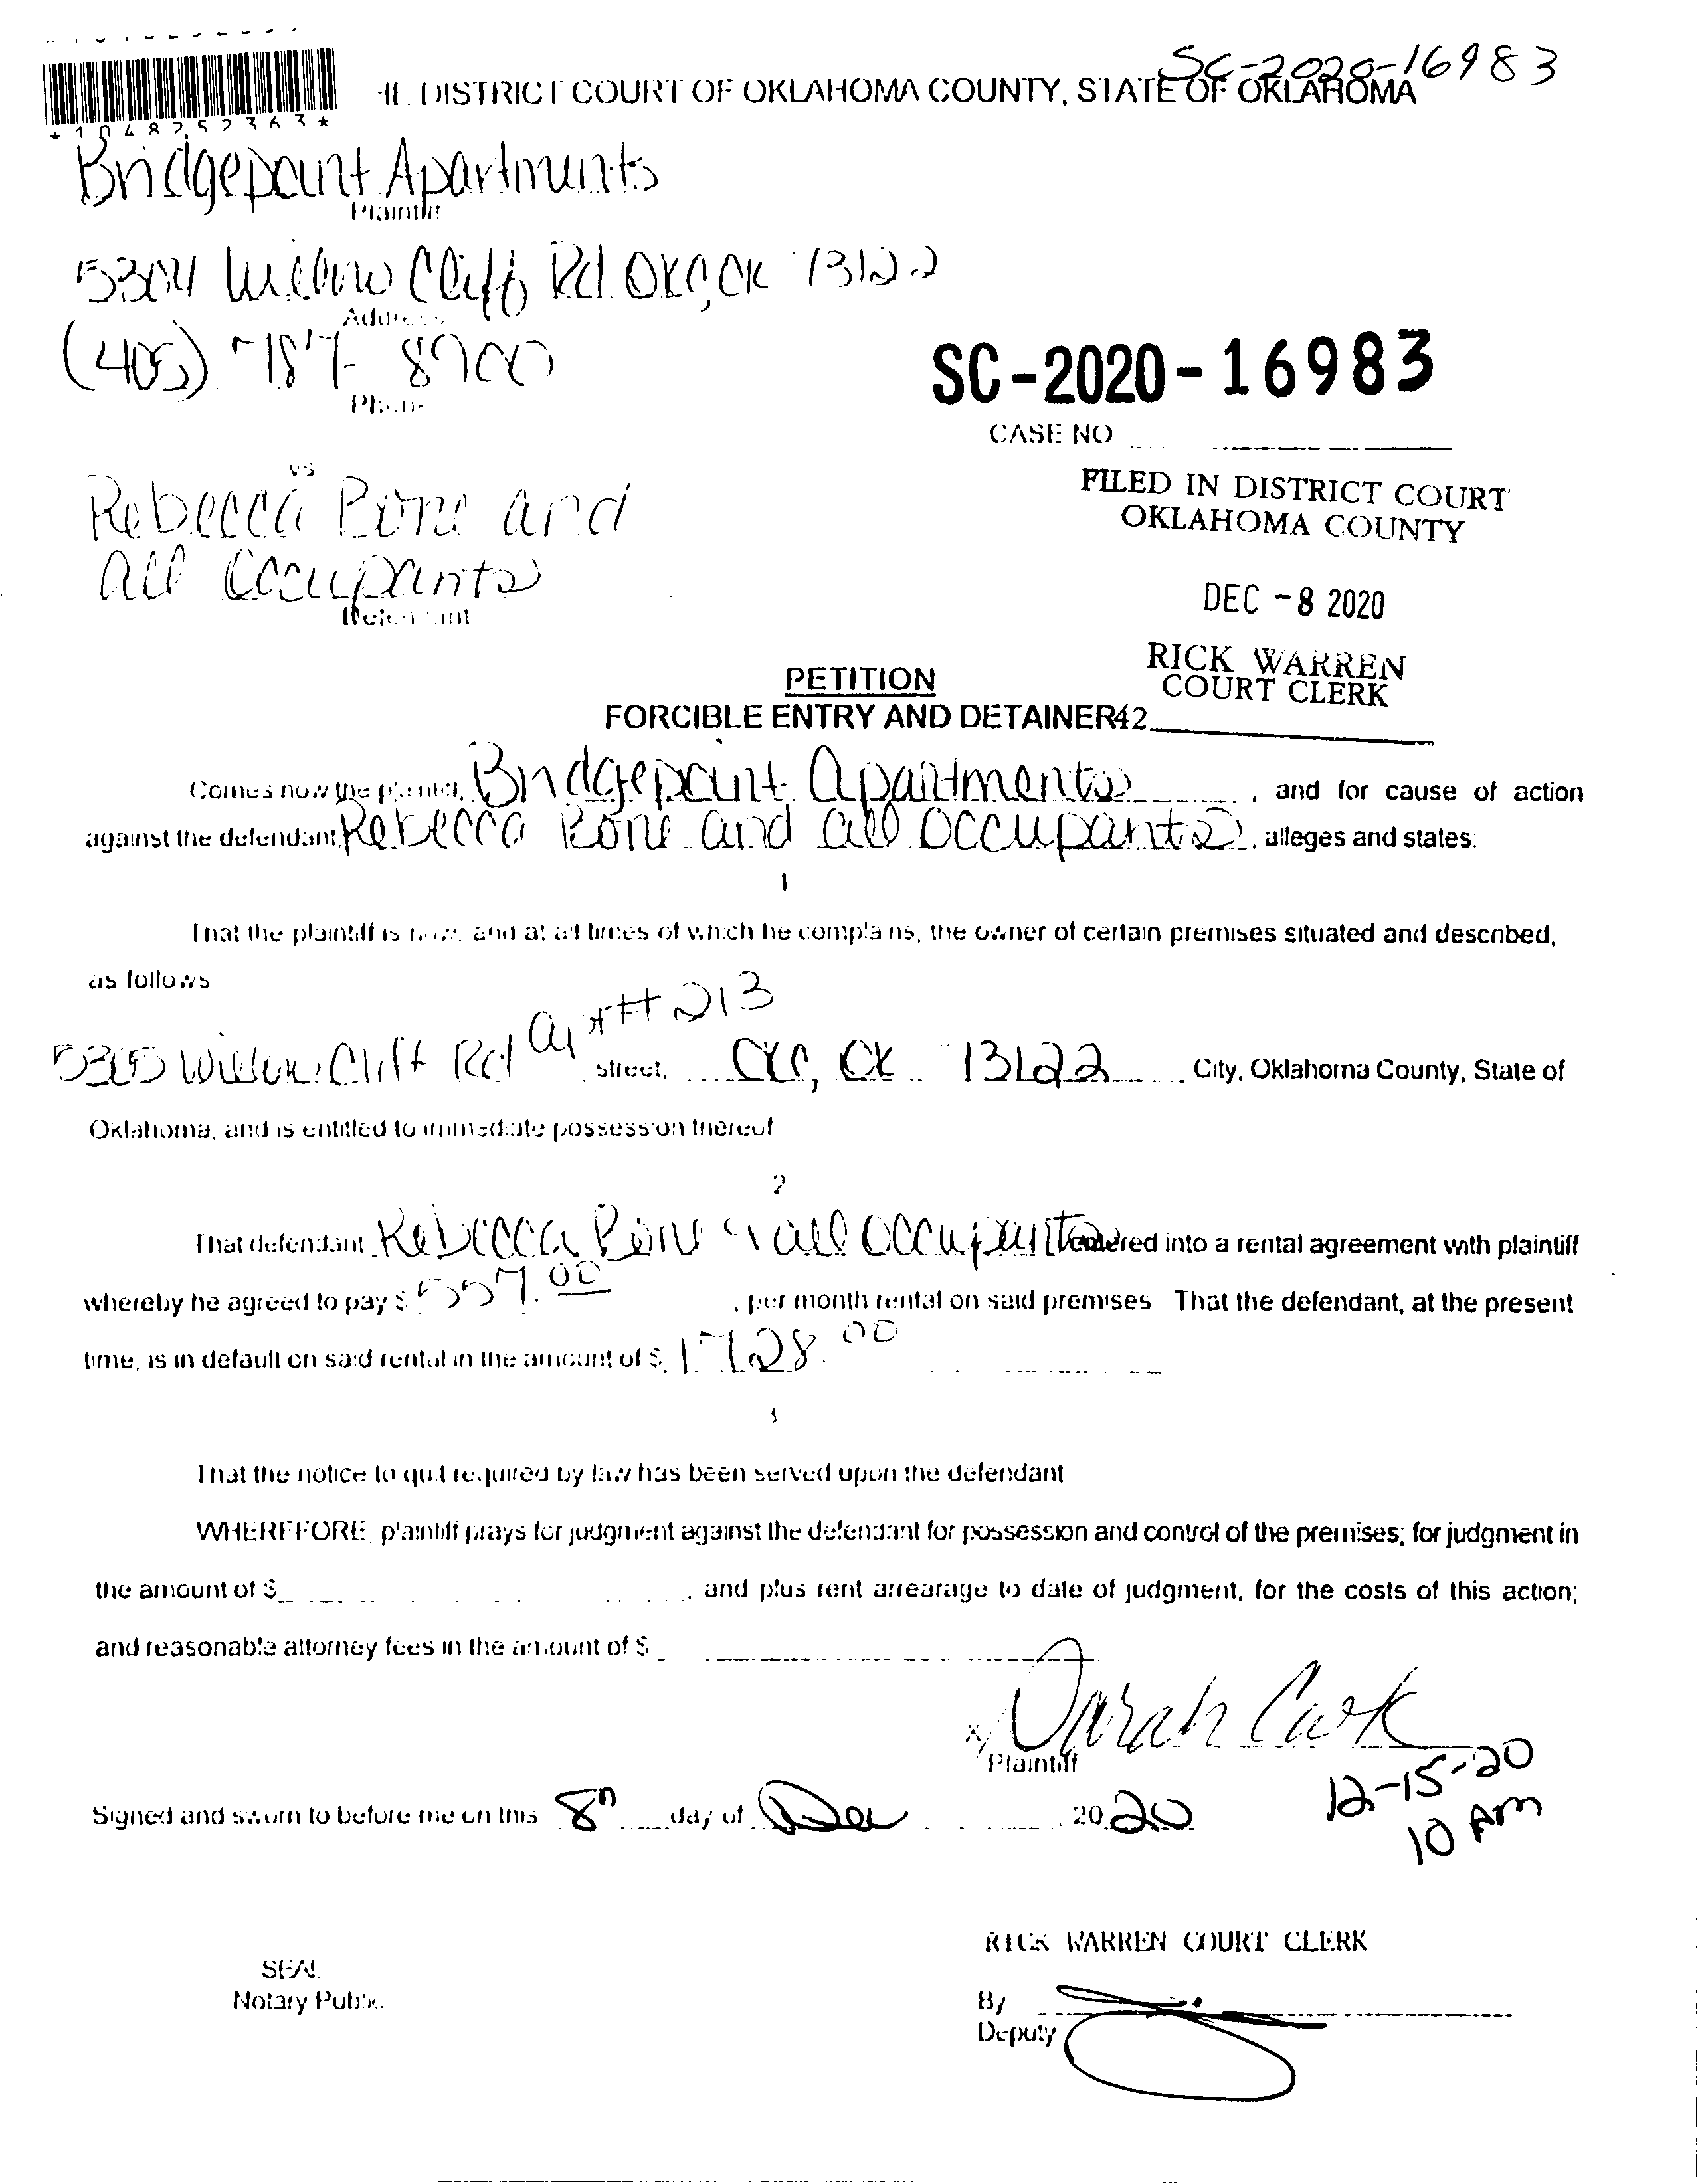 SC-2020-16983
HE DISTRICT COURT OF OKLAHOMA COUNTY, STATE OF OKLAHOMA
*1048252363*
Bridgepoint Apartments
Plaintiff
5304 Willow Cliff Rd OKC, OK 73122
Address
(405) 787-8900
Phone
SC-2020-16983
CASE NO
vs
FILED IN DISTRICT COURT
OKLAHOMA COUNTY
Rebecca Bone and
all Occupants
Defendant
DEC -8 2020
RICK WARREN
COURT CLERK
PETITION
FORCIBLE ENTRY AND DETAINER 42
Comes now the plaintiff, Bridgepoint Apartments, and for cause of action
against the defendant Rebecca Bone and all Occupants, alleges and states:
1
That the plaintiff is now, and at all times of which he complains, the owner of certain premises situated and described,
as follows
5305 Willow Cliff Rd Apt # 213 street, OKC, OK 73122 City, Oklahoma County, State of
Oklahoma, and is entitled to immediate possession thereof
2
That defendant Rebecca Bone & all Occupants entered into a rental agreement with plaintiff
whereby he agreed to pay $ 557.00, per month rental on said premises That the defendant, at the present
time, is in default on said rental in the amount of $ 1728.00
That the notice to quit required by law has been served upon the defendant
WHEREFORE, plaintiff prays for judgment against the defendant for possession and control of the premises; for judgment in
the amount of $ , and plus rent arrearage to date of judgment; for the costs of this action;
and reasonable attorney fees in the amount of $
x Sarah Cook
Plaintiff
12-15-20
10 AM
Signed and sworn to before me on this 8th day of Dec 2020
RICK WARREN COURT CLERK
SEAL
Notary Public
By
Deputy